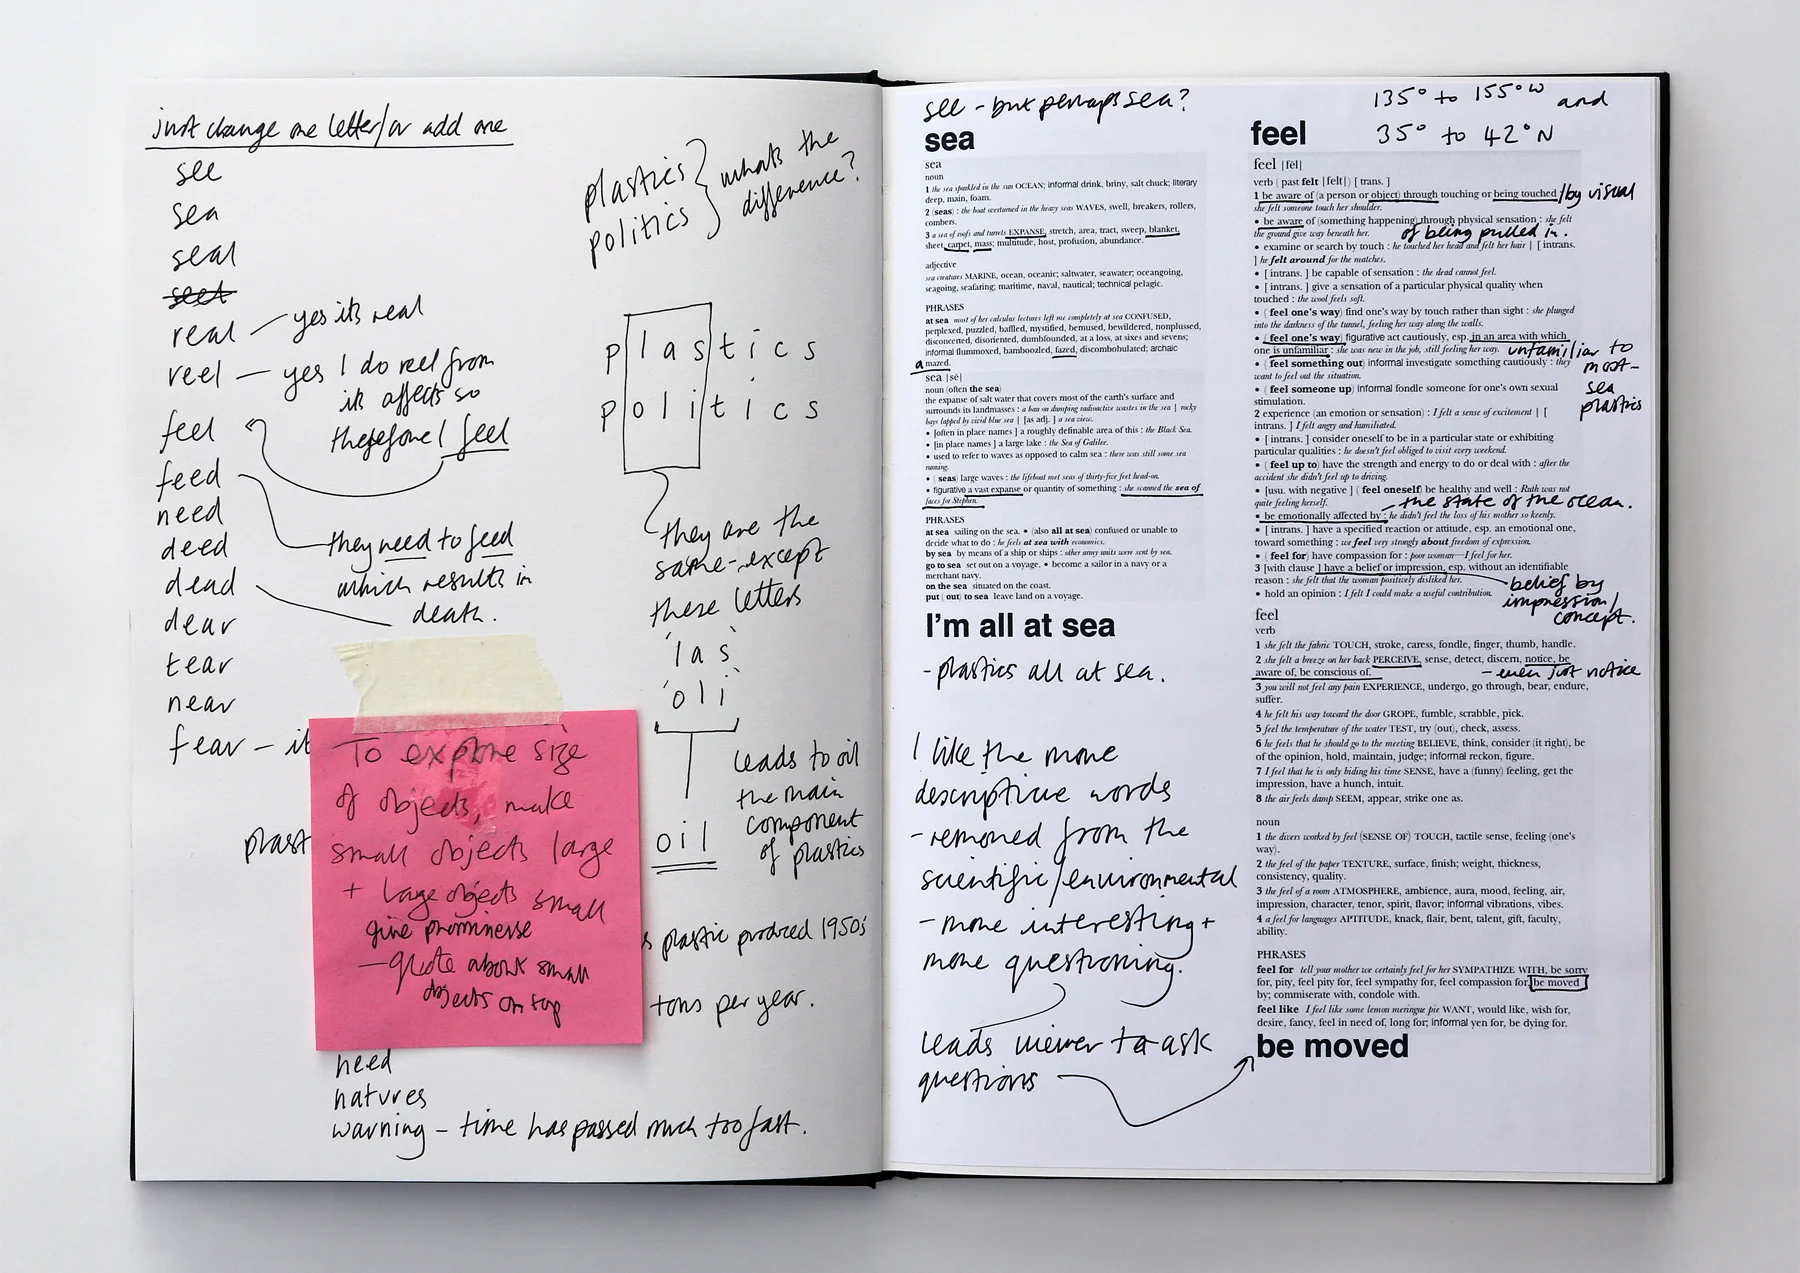 just change one letter/or add one
see
sea
seal
seet
real – yes its real
reel – yes I do reel from
its affects so
therefore I feel
feel
feed
need
deed
they need to feed
which results in
death.
dead
dear
tear
near
fear – it
plastics
politics
whats the
difference?
plastics
politics
they are the
same – except
these letters
'las'
'oli'
leads to oil
the main
component
of plastics
oil
plast
To explore size
of objects, make
small objects large
+ large objects small
give prominence
– quote about small
objects on top
s plastic produced 1950s'
tons per year.
heed
natures
warning – time has passed much too fast.
see – but perhaps sea?
sea
sea
noun
1 the sea sparkled in the sun OCEAN; informal drink, briny, salt chuck; literary
deep, main, foam.
2 (seas) : the boat overturned in the heavy seas WAVES, swell, breakers, rollers,
combers.
3 a sea of roofs and turrets EXPANSE, stretch, area, tract, sweep, blanket,
sheet, carpet, mass; multitude, host, profusion, abundance.
adjective
sea creatures MARINE, ocean, oceanic; saltwater, seawater; oceangoing,
seagoing, seafaring; maritime, naval, nautical; technical pelagic.
PHRASES
at sea most of her calculus lectures left me completely at sea CONFUSED,
perplexed, puzzled, baffled, mystified, bemused, bewildered, nonplussed,
disconcerted, disoriented, dumbfounded, at a loss, at sixes and sevens;
informal flummoxed, bamboozled, fazed, discombobulated; archaic
mazed.
a
sea |sē|
noun (often the sea)
the expanse of salt water that covers most of the earth's surface and
surrounds its landmasses : a ban on dumping radioactive wastes in the sea | rocky
bays lapped by vivid blue sea | [as adj. ] a sea view.
• [often in place names ] a roughly definable area of this : the Black Sea.
• [in place names ] a large lake : the Sea of Galilee.
• used to refer to waves as opposed to calm sea : there was still some sea
running.
• ( seas) large waves : the lifeboat met seas of thirty-five feet head-on.
• figurative a vast expanse or quantity of something : she scanned the sea of
faces for Stephen.
PHRASES
at sea sailing on the sea. • (also all at sea) confused or unable to
decide what to do : he feels at sea with economics.
by sea by means of a ship or ships : other army units were sent by sea.
go to sea set out on a voyage. • become a sailor in a navy or a
merchant navy.
on the sea situated on the coast.
put ( out) to sea leave land on a voyage.
I'm all at sea
– plastics all at sea.
I like the more
descriptive words
– removed from the
scientific/environmental
– more interesting +
more questioning.
leads viewer to ask
questions
135° to 155°W and
35° to 42°N
feel
feel |fēl|
verb ( past felt |felt|) [ trans. ]
1 be aware of (a person or object) through touching or being touched :
/by visual
she felt someone touch her shoulder.
• be aware of (something happening) through physical sensation : she felt
the ground give way beneath her.
of being pulled in.
• examine or search by touch : he touched her head and felt her hair | [ intrans.
] he felt around for the matches.
• [ intrans. ] be capable of sensation : the dead cannot feel.
• [ intrans. ] give a sensation of a particular physical quality when
touched : the wool feels soft.
• ( feel one's way) find one's way by touch rather than sight : she plunged
into the darkness of the tunnel, feeling her way along the walls.
• ( feel one's way) figurative act cautiously, esp. in an area with which
one is unfamiliar : she was new in the job, still feeling her way.
unfamiliar to
most –
sea
plastics
• ( feel something out) informal investigate something cautiously : they
want to feel out the situation.
• ( feel someone up) informal fondle someone for one's own sexual
stimulation.
2 experience (an emotion or sensation) : I felt a sense of excitement | [
intrans. ] I felt angry and humiliated.
• [ intrans. ] consider oneself to be in a particular state or exhibiting
particular qualities : he doesn't feel obliged to visit every weekend.
• ( feel up to) have the strength and energy to do or deal with : after the
accident she didn't feel up to driving.
• [usu. with negative ] ( feel oneself) be healthy and well : Ruth was not
quite feeling herself.
– the state of the ocean.
• be emotionally affected by : he didn't feel the loss of his mother so keenly.
• [ intrans. ] have a specified reaction or attitude, esp. an emotional one,
toward something : we feel very strongly about freedom of expression.
• ( feel for) have compassion for : poor woman—I feel for her.
3 [with clause ] have a belief or impression, esp. without an identifiable
reason : she felt that the woman positively disliked her.
• hold an opinion : I felt I could make a useful contribution.
belief by
impression/
concept.
feel
verb
1 she felt the fabric TOUCH, stroke, caress, fondle, finger, thumb, handle.
2 she felt a breeze on her back PERCEIVE, sense, detect, discern, notice, be
aware of, be conscious of.
– even just notice
3 you will not feel any pain EXPERIENCE, undergo, go through, bear, endure,
suffer.
4 he felt his way toward the door GROPE, fumble, scrabble, pick.
5 feel the temperature of the water TEST, try (out), check, assess.
6 he feels that he should go to the meeting BELIEVE, think, consider (it right), be
of the opinion, hold, maintain, judge; informal reckon, figure.
7 I feel that he is only biding his time SENSE, have a (funny) feeling, get the
impression, have a hunch, intuit.
8 the air feels damp SEEM, appear, strike one as.
noun
1 the divers worked by feel (SENSE OF) TOUCH, tactile sense, feeling (one's
way).
2 the feel of the paper TEXTURE, surface, finish; weight, thickness,
consistency, quality.
3 the feel of a room ATMOSPHERE, ambience, aura, mood, feeling, air,
impression, character, tenor, spirit, flavor; informal vibrations, vibes.
4 a feel for languages APTITUDE, knack, flair, bent, talent, gift, faculty,
ability.
PHRASES
feel for tell your mother we certainly feel for her SYMPATHIZE WITH, be sorry
for, pity, feel pity for, feel sympathy for, feel compassion for, be moved
by; commiserate with, condole with.
feel like I feel like some lemon meringue pie WANT, would like, wish for,
desire, fancy, feel in need of, long for; informal yen for, be dying for.
be moved